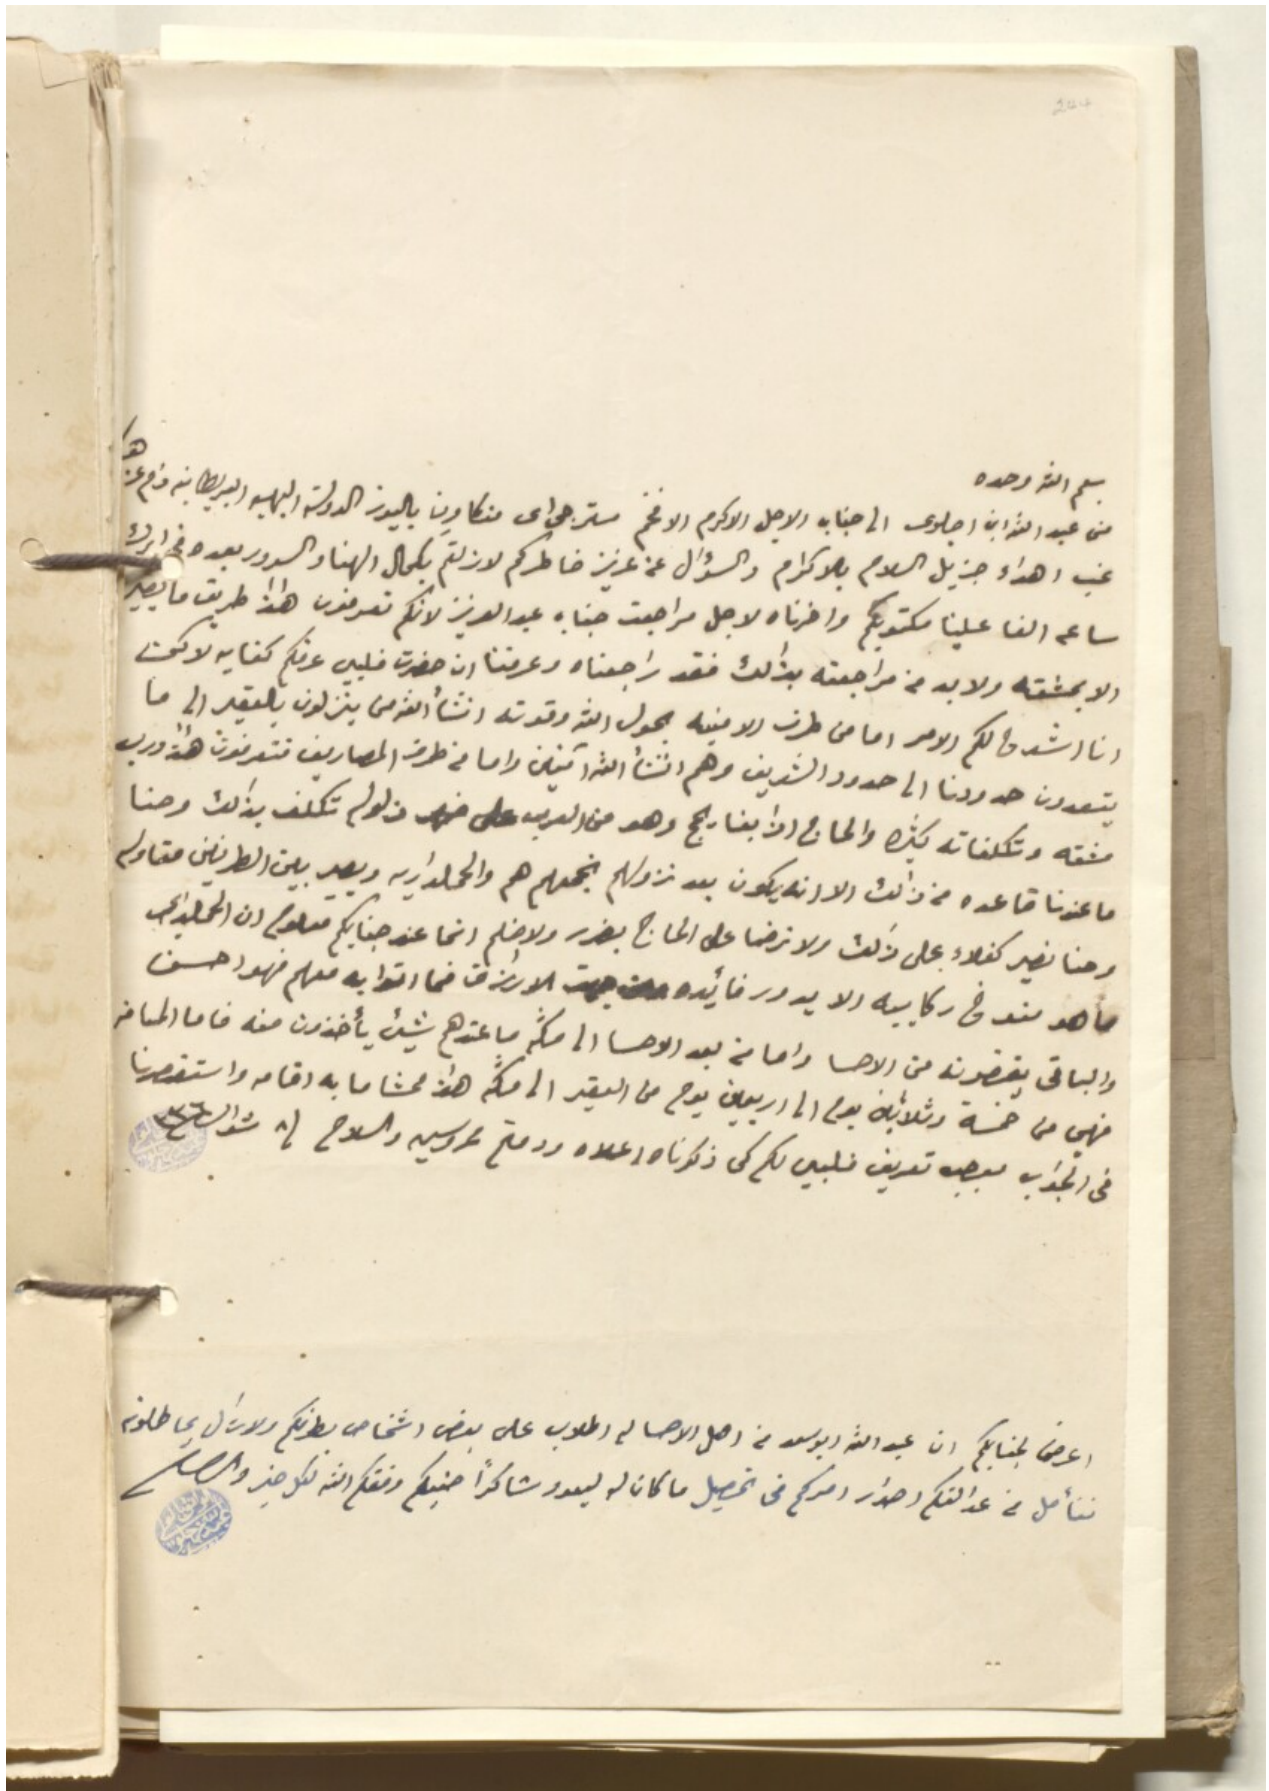 244
بسم الله وحده
من عبد الله ابن اجلوى الى جناب الاجل الاكرم الافخم مستر جي اى منكاوين باليوز الدولة البهيه البريطانيه دام عزه
غب اهداء جزيل السلام بالاكرام والسؤال عن عزيز خاطركم لازلتم بكمال الهنا والسرور بعده في ابرك
ساعه الفا علينا مكتوبكم واخرناه لاجل مراجعت جنابه عبد العزيز لانكم تعرفون هاذا طريق ما يصير
الا بمشقه ولابد من مراجعته بذالك فقد راجعناه وعرفنا ان حضرت فلبي عرفكم كفايه لاكن
انا اشرح لكم الامر اما من طرف الامنيه بحول الله وقوته انشأ الله من ينزلون بالعقير الى ما
يتعدون حدودنا الى حدود الشريف وهم انشأ الله آمنين واما من طرف المصاريف فتعرفون هاذا درب
مشقه وتكلفاته كثيره والحاج اذا بغا يحج وهو من العرب على ذلوله تكلف بذالك وحنا
ما عندنا قاعده من ذالك الا انه يكون بعد نزولهم نجمعهم هم والحملداريه ويصير بين الطرفين مقاوله
وحنا نصير كفلاء على ذالك ولا نرضا على الحاج بضرر ولا ظلم انما عند جنابكم معلوم ان الحملدارى
ما هو ركابيه الا يدور فائيده الارزاق فما اتوا به معهم فهو احسن
والباقى يقضونه من الاحسا واما من بعد الاحسا الى مكة ما عندهم شيئ يأخذون منه فاما المسافه
فهي من خمسة وثلاثين يوم الى اربعين يوم من العقير الى مكة هاذا ممشا ما به اقامه واستقصرنا
فى الجواب بموجب تعريف فلبي لكم كما ذكرناه اعلاه ودمتم محروسين والسلام في ٨ شوال ٣٦
اعرض لجنابكم ان عبد الله ابوسعد من اهل الاحسا له اطلاب على بعض اشخاص بطرفكم ولازال يماطلونه
نتأمل من عدالتكم اصدار امركم فى تحصيل ما كان له ليعود شاكراً وفقكم الله لكل خير والسلام